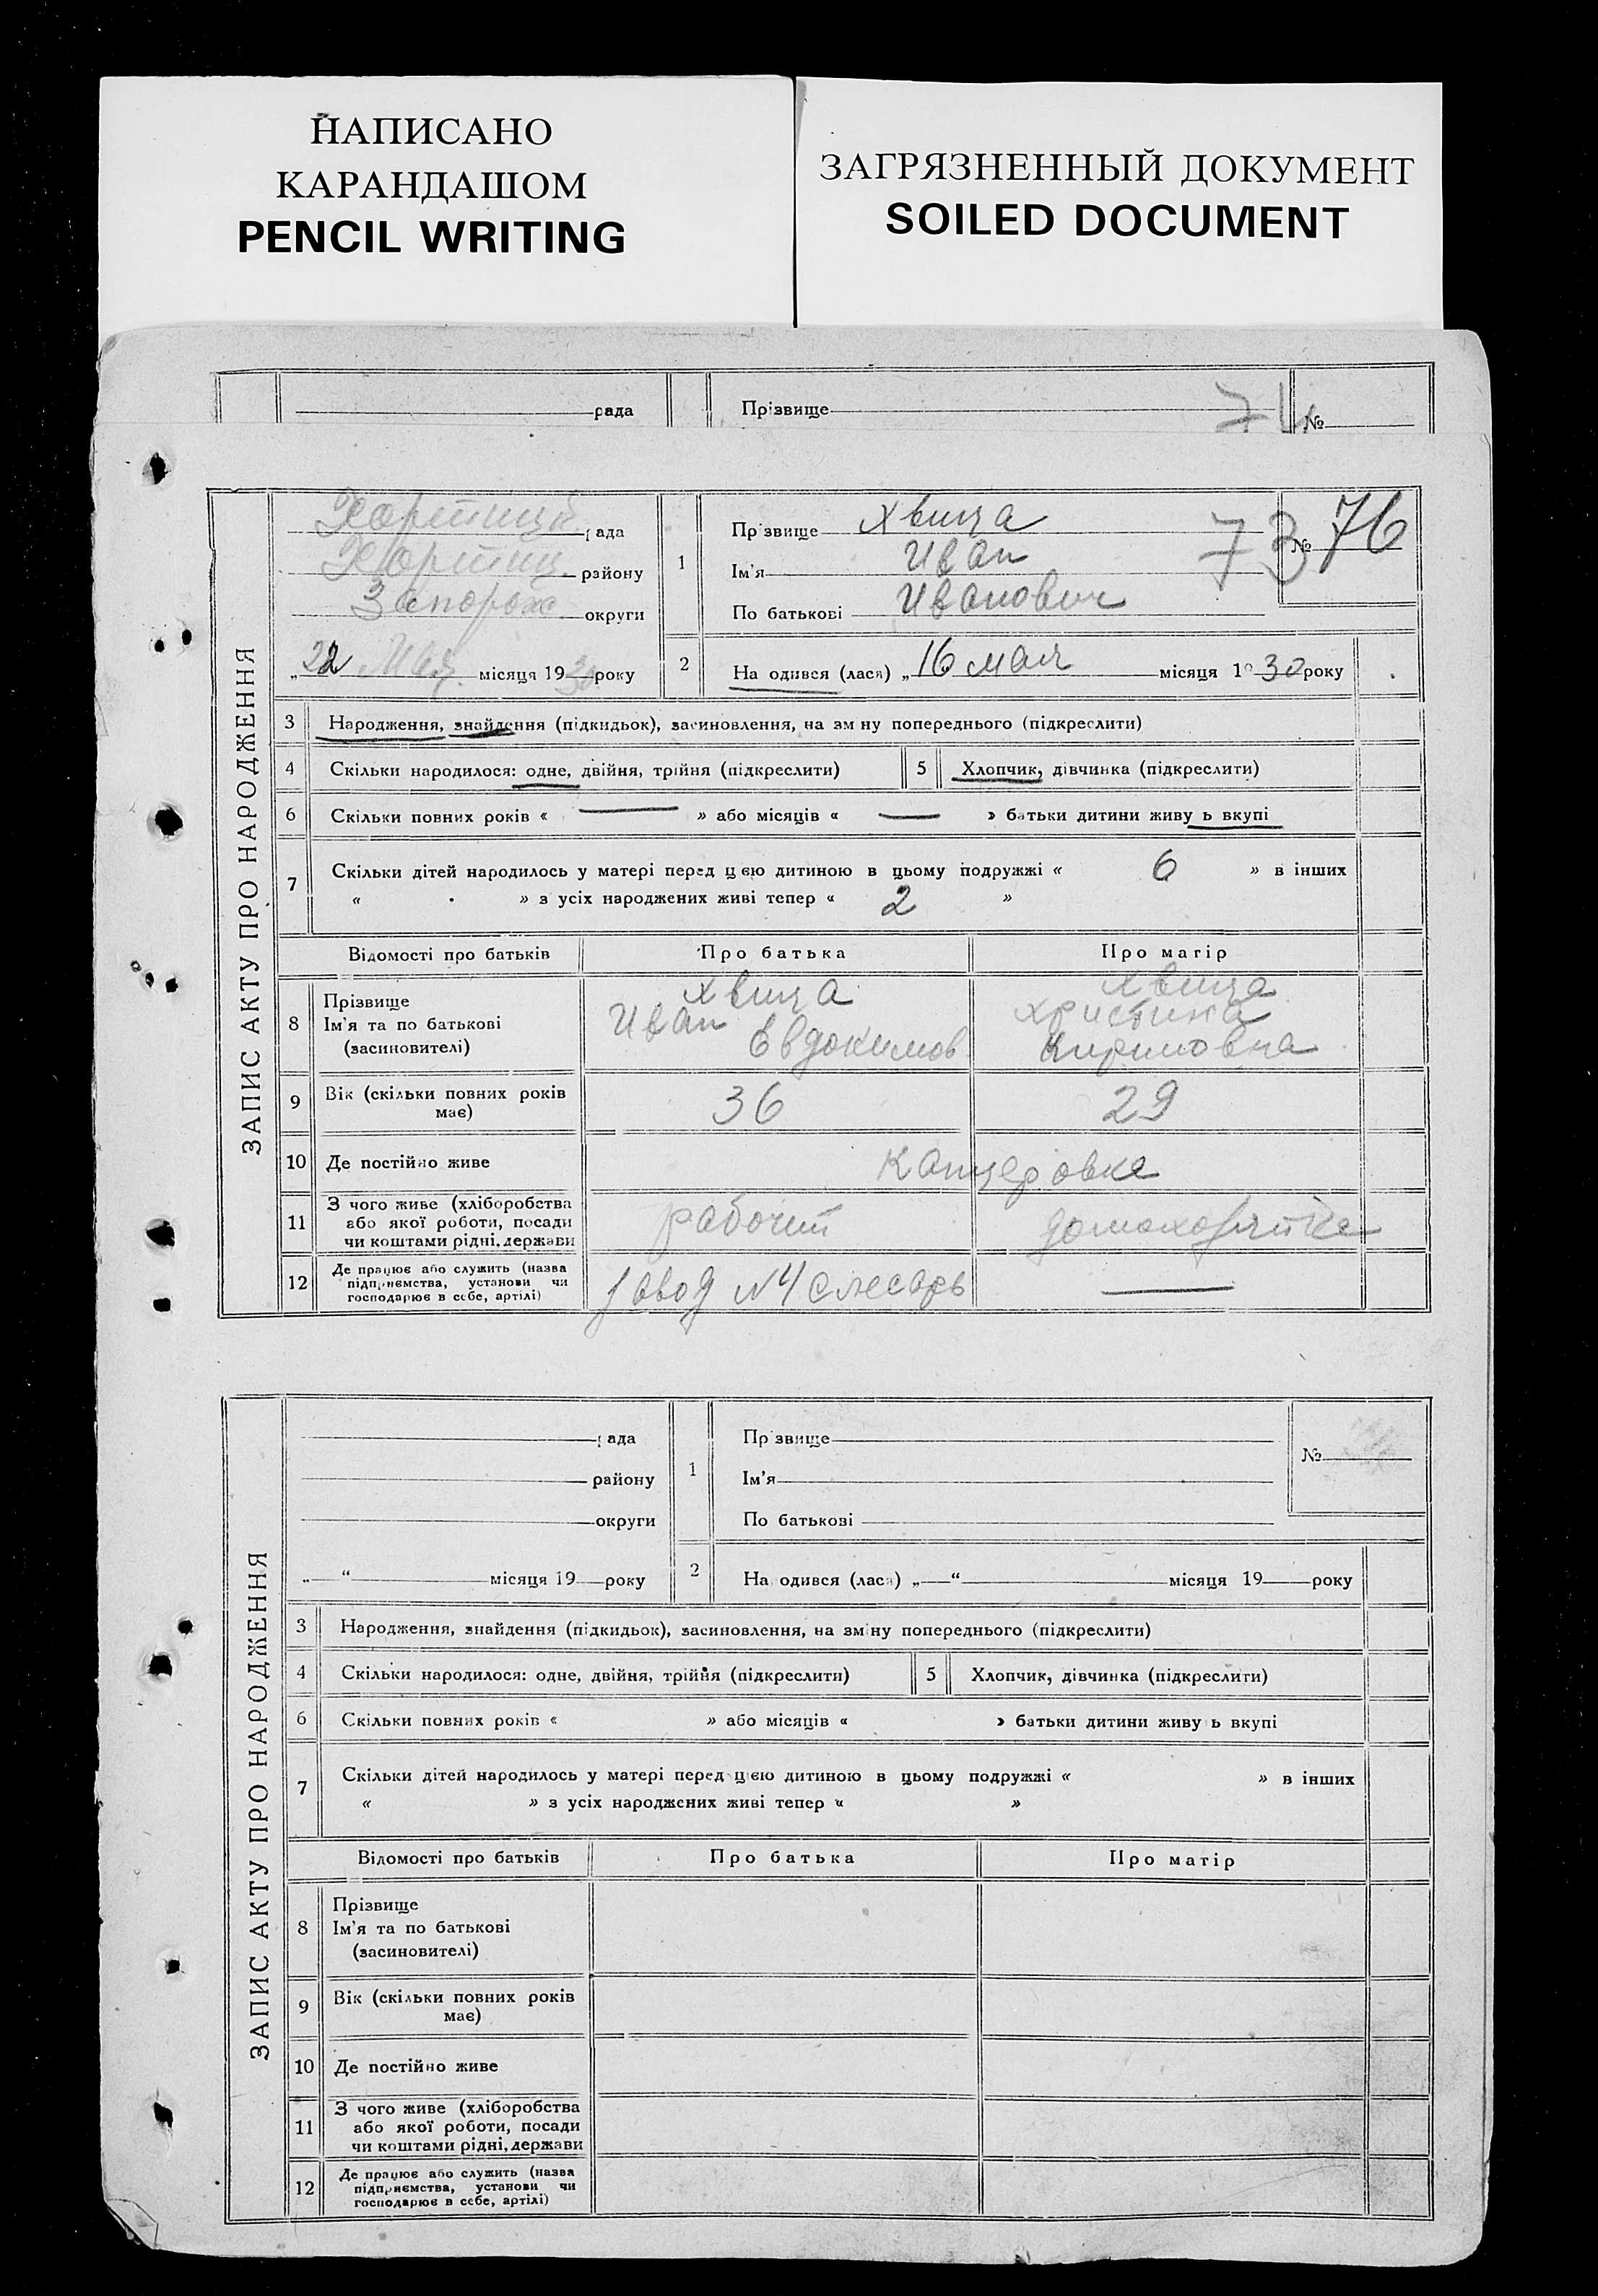 НАПИСАНО
КАРАНДАШОМ
PENCIL WRITING
ЗАГРЯЗНЕННЫЙ ДОКУМЕНТ
SOILED DOCUMENT
рада
Прізвище 74 №
ЗАПИС АКТУ ПРО НАРОДЖЕННЯ
рада
району
Запорож округи
„22 Мая місяця 1930 року
1
Прізвище Хвища
Ім'я Иван
По батькові Иванович
73 № 76
2
Народився (лася) „16 мая місяця 1930 року
3 Народження, знайдення (підкидьок), засиновлення, на зміну попереднього (підкреслити)
4 Скільки народилося: одне, двійня, трійня (підкреслити)
5 Хлопчик, дівчинка (підкреслити)
6 Скільки повних років « — » або місяців « — » батьки дитини живуть вкупі
7 Скільки дітей народилось у матері перед цією дитиною в цьому подружжі « 6 » в інших
« » з усіх народжених живі тепер « 2 »
Відомості про батьків Про батька Про матір
8 Прізвище
Ім'я та по батькові
(засиновителі)
Хвища
Иван
Евдокимов
Хвища
Христина
9 Вік (скільки повних років
має)
36 29
10 Де постійно живе Канцеровка
11 З чого живе (хліборобства
або якої роботи, посади
чи коштами рідні, держави
рабочий домохозяйка
12 Де працює або служить (назва
підприємства, установи чи
господарює в себе, артілі)
завод N4 слесарь —
ЗАПИС АКТУ ПРО НАРОДЖЕННЯ
рада
району
округи
„ “ місяця 19 року
1
Прізвище
Ім'я
По батькові
№
2
Народився (лася) „ “ місяця 19 року
3 Народження, знайдення (підкидьок), засиновлення, на зміну попереднього (підкреслити)
4 Скільки народилося: одне, двійня, трійня (підкреслити)
5 Хлопчик, дівчинка (підкреслити)
6 Скільки повних років « » або місяців « » батьки дитини живуть вкупі
7 Скільки дітей народилось у матері перед цією дитиною в цьому подружжі « » в інших
« » з усіх народжених живі тепер « »
Відомості про батьків Про батька Про матір
8 Прізвище
Ім'я та по батькові
(засиновителі)
9 Вік (скільки повних років
має)
10 Де постійно живе
11 З чого живе (хліборобства
або якої роботи, посади
чи коштами рідні, держави
12 Де працює або служить (назва
підприємства, установи чи
господарює в себе, артілі)